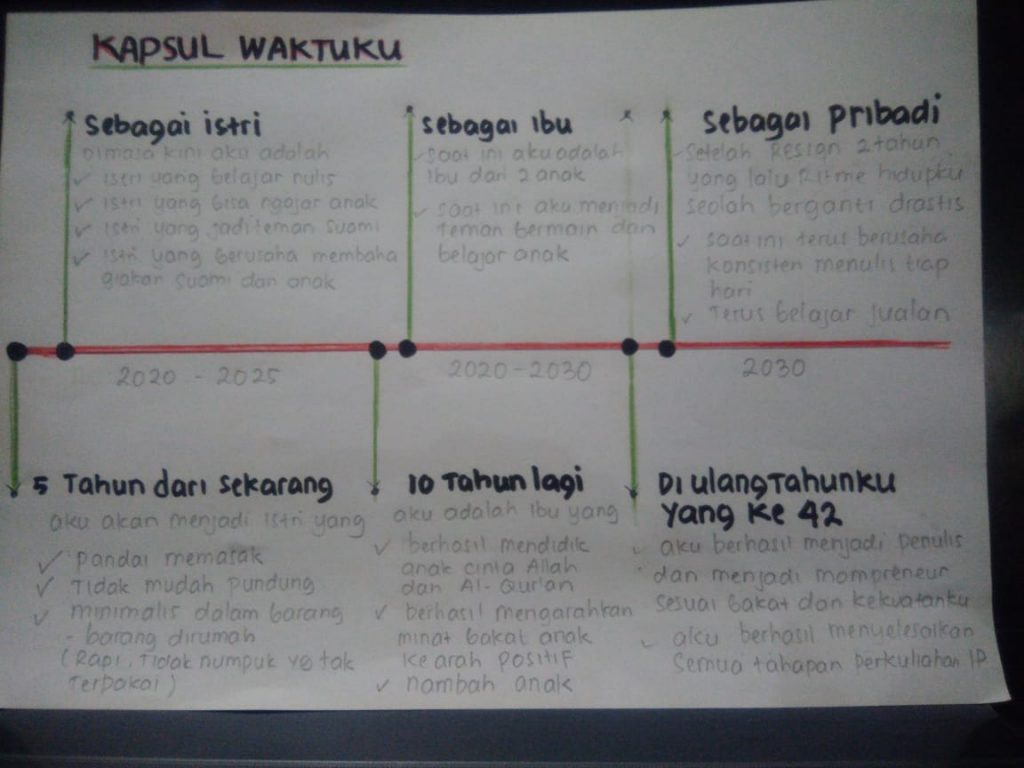 KAPSUL WAKTUKU
Sebagai istri
Dimasa kini aku adalah
✓ istri yang belajar nulis
✓ istri yang bisa ngajar anak
✓ istri yang jadi teman suami
✓ istri yang berusaha membaha
giakan suami dan anak
Sebagai Ibu
- Saat ini aku adalah
Ibu dari 2 anak
✓ saat ini aku menjadi
teman bermain dan
belajar anak
Sebagai Pribadi
- Setelah Resign 2 tahun
yang lalu Ritme hidupku
seolah berganti drastis
✓ saat ini terus berusaha
konsisten menulis tiap
hari
✓ Terus belajar jualan
2020 - 2025
2020 - 2030
2030
5 Tahun dari sekarang
aku akan menjadi istri yang
✓ pandai memasak
✓ Tidak mudah pundung
✓ minimalis dalam barang
- barang dirumah
(Rapi, Tidak numpuk yg tak
terpakai)
10 Tahun lagi
aku adalah ibu yang
✓ berhasil mendidik
anak cinta Allah
dan Al-Qur'an
✓ berhasil mengarahkan
minat bakat anak
ke arah positif
✓ nambah anak
Di ulang Tahunku
yang ke 42
✓ aku berhasil menjadi penulis
dan menjadi mompreneur
sesuai bakat dan kekuatanku
✓ aku berhasil menyelesaikan
semua tahapan perkuliahan IP